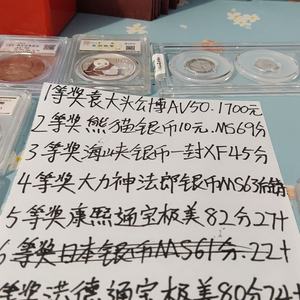 1等奖袁大头公博AV50.1700元
2等奖熊猫银币10元.MS69分
3等奖海峡银币一封XF45分
4等奖大力神法郎银币MS63
5等奖康熙通宝极美82分27+
6等奖日本银币MS61分.22+
等奖洪德通宝极美80分